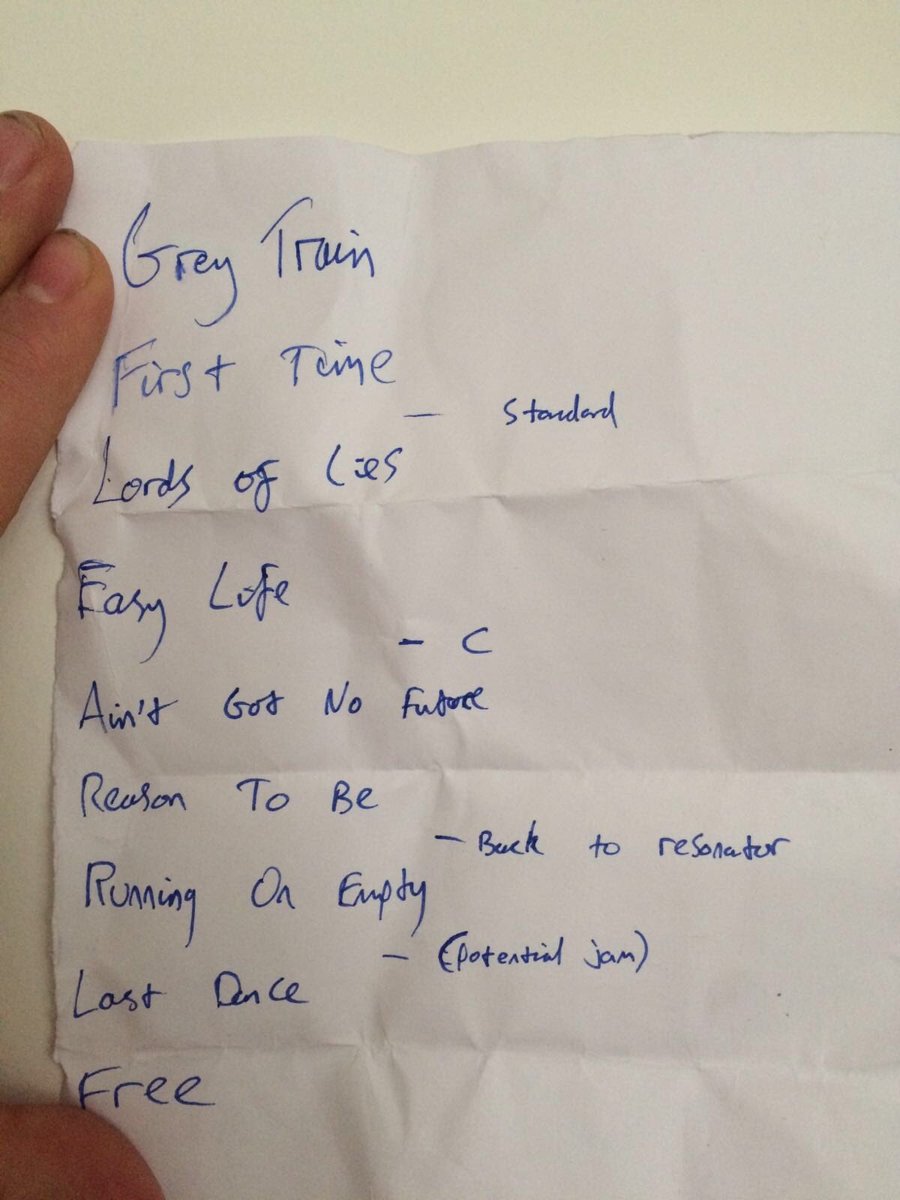 Grey Train
First Time
- Standard
Lords of Lies
Easy Life
- C
Ain't Got No Future
Reason To Be
- Back to resonator
Running On Empty
- (potential jam)
Last Dance
Free